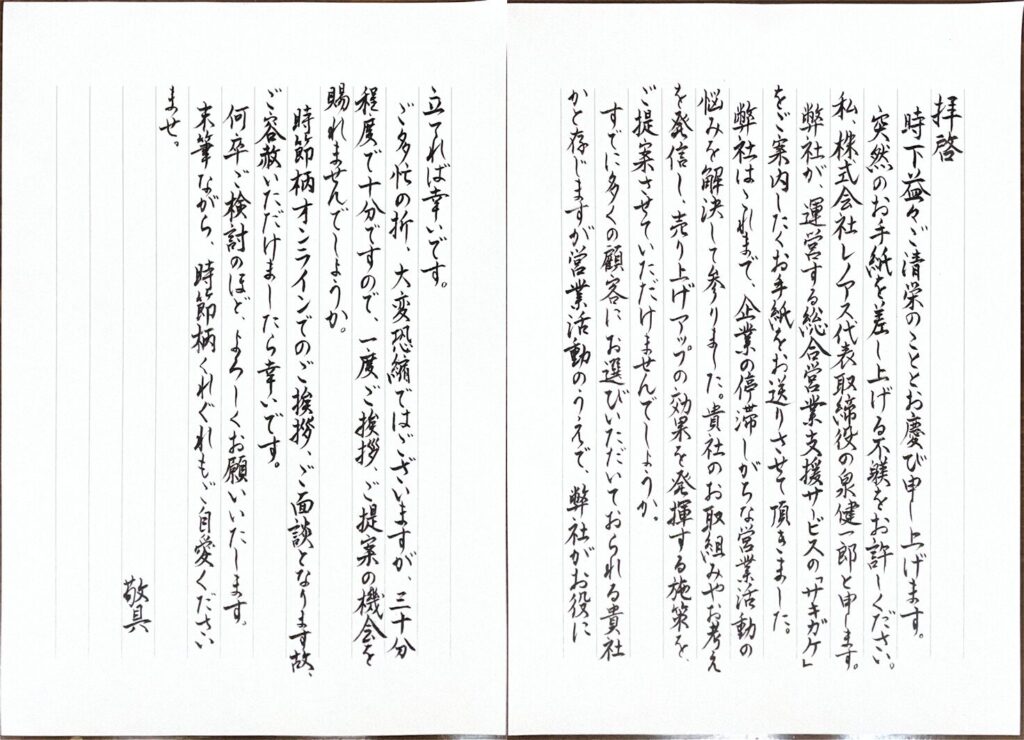 拝啓
時下益々ご清栄のこととお慶び申し上げます。
突然のお手紙を差し上げる不躾をお許しください。
私、株式会社レノアス代表取締役の泉健一郎と申します。
弊社が、運営する総合営業支援サービスの「サキガケ」
をご案内したくお手紙をお送りさせて頂きました。
弊社はこれまで、企業の停滞しがちな営業活動の
悩みを解決して参りました。貴社のお取組みやお考え
を発信し、売り上げアップの効果を発揮する施策を、
ご提案させていただけませんでしょうか。
すでに多くの顧客にお選びいただいておられる貴社
かと存じますが営業活動のうえで、弊社がお役に
立てれば幸いです。
ご多忙の折、大変恐縮ではございますが、三十分
程度で十分ですので、一度ご挨拶、ご提案の機会を
賜れませんでしょうか。
時節柄オンラインでのご挨拶、ご面談となります故、
ご容赦いただけましたら幸いです。
何卒ご検討のほど、よろしくお願いいたします。
末筆ながら、時節柄くれぐれもご自愛ください
ませ。
敬具